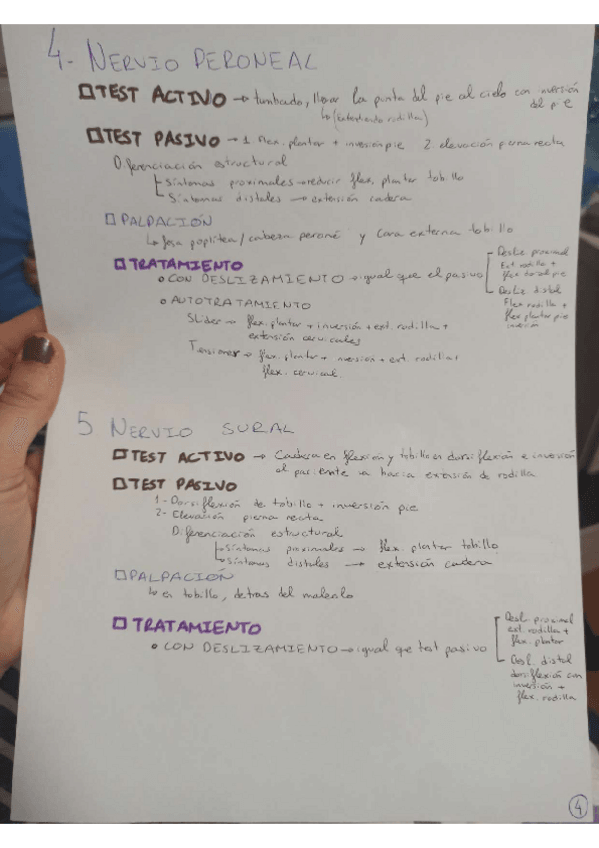 4- NERVIO PERONEAL
TEST ACTIVO → tumbado, llevar la punta del pie al cielo con inversión del pie
↳ (extendiendo rodilla)
TEST PASIVO → 1. Flex. plantar + inversión pie 2. elevación pierna recta
Diferenciación estructural
Síntomas proximales → reducir flex. plantar tobillo
Síntomas distales → extensión cadera
PALPACIÓN
↳ fosa poplítea / cabeza peroné y cara externa tobillo
TRATAMIENTO
CON DESLIZAMIENTO → igual que el pasivo
Desliz proximal
Ext rodilla +
flex total pie
Desliz distal
Flex rodilla +
flex plantar pie
inversión
AUTOTRATAMIENTO
Slider → flex. plantar + inversión + ext. rodilla +
extensión cervicales
Tensioner → flex. plantar + inversión + ext. rodilla +
flex. cervical
5 NERVIO SURAL
TEST ACTIVO → Cadera en flexión y tobillo en dorsiflexión e inversión
el paciente va hacia extensión de rodilla
TEST PASIVO
1- Dorsiflexión de tobillo + inversión pie
2- Elevación pierna recta
Diferenciación estructural
Síntomas proximales → flex. plantar tobillo
Síntomas distales → extensión cadera
PALPACIÓN
↳ en tobillo, detras del maleolo
TRATAMIENTO
CON DESLIZAMIENTO → igual que test pasivo
Desl. proximal
ext. rodilla +
flex. plantar
Desl. distal
dorsiflexión con
inversión +
flex. rodilla
4